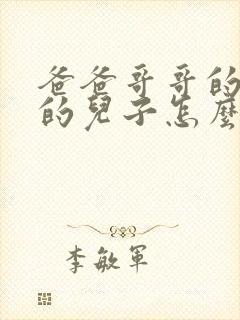 爸爸哥哥的
的兒子怎麼
李敏軍